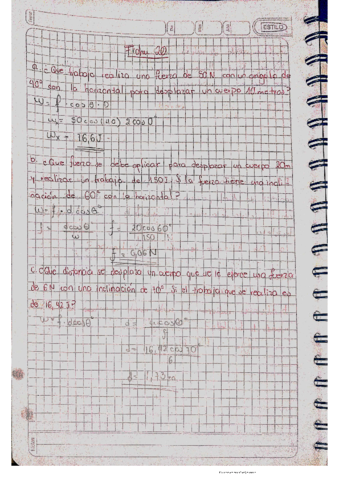 ESTILO
Ficha 20
a. ¿Que trabajo realiza una fuerza de 50N con un angulo de
40° con la horizontal para desplazar un cuerpo 10 metros?
W = f · cos θ · D
W = 50 cos (40)
Wx = 16,6J
b. ¿Que fuerza se debe aplicar para desplazar un cuerpo 20m
y realizar un trabajo de 150J. Si la fuerza tiene una incli-
nación de 60° con la horizontal?
W = f · d cos θ
f = d cos θ / W f = 20 cos 60° / 150
f = 0,06 N
c. ¿Que distancia se desplazo un cuerpo que se le ejerce una fuerza
de 6N con una inclinacion de 40° Si el trabajo que se realiza es
de 16,42J?
W = f · d cos θ d = W cos θ / f
d = 16,42 cos 40° / 6